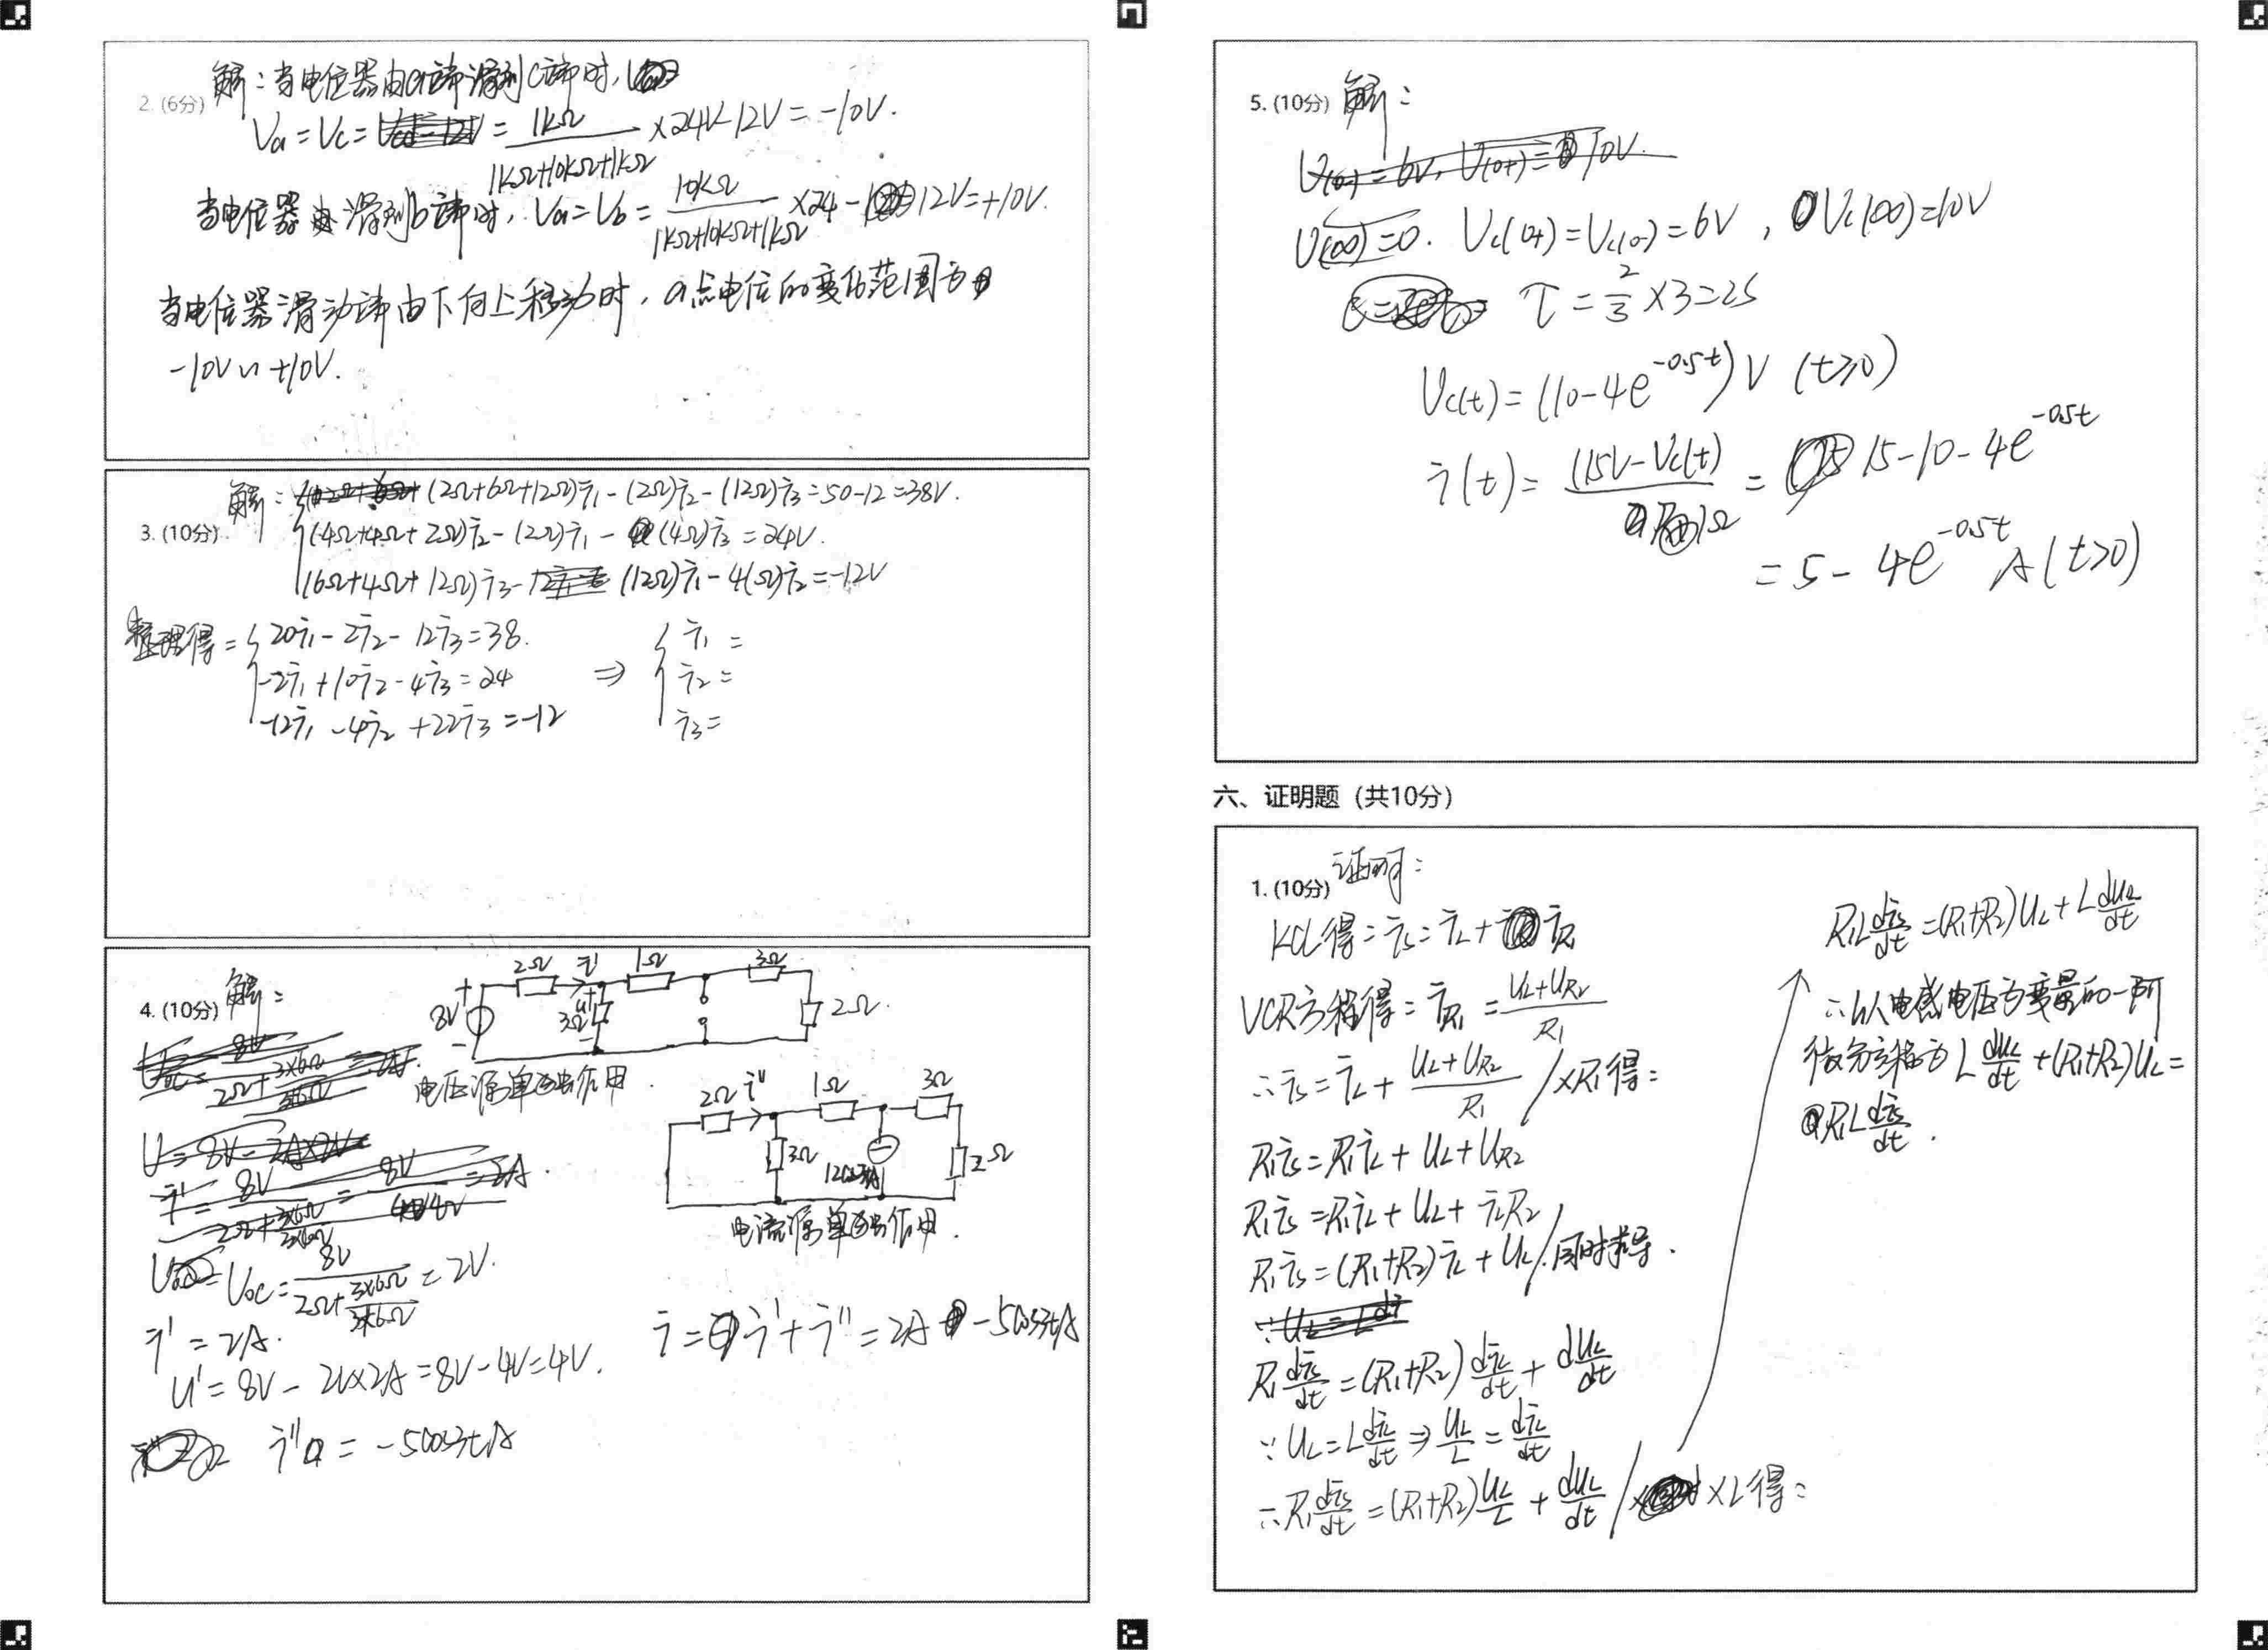 2. (6分) 解：当电位器由a端滑到c端时，
Va = Vc = 1kΩ / (1kΩ+10kΩ+1kΩ) ×24V-12V = -10V.
当电位器 滑到b端时, Va = Vb = 10kΩ / (1kΩ+10kΩ+1kΩ) ×24 - 12V = +10V.
当电位器滑动端由下向上移动时，a点电位的变化范围为
-10V ~ +10V.
3. (10分) 解：(2Ω+6Ω+12Ω)i₁-(2Ω)i₂-(12Ω)i₃=50-12=38V.
(4Ω+4Ω+2Ω)i₂-(2Ω)i₁-(4Ω)i₃=24V.
(6Ω+4Ω+12Ω)i₃-(12Ω)i₁-4(Ω)i₂=-12V
整理得= 20i₁-2i₂-12i₃=38. ⇒ i₁=
-2i₁+10i₂-4i₃=24 i₂=
-12i₁-4i₂+22i₃=-12 i₃=
4. (10分) 解：
2Ω i' 1Ω 3Ω
+ 8V - + u' - 3Ω 2Ω.
电压源单独作用.
2Ω i'' 1Ω 3Ω
3Ω 12cos3tA 2Ω
电流源单独作用.
Uoc = 8V / (2Ω + 3×6Ω/3+6Ω) = 2V.
i' = 2A.
u' = 8V - 2V×2A = 8V-4V = 4V.
i'' = -5cos3tA
i = i' + i'' = 2A -5cos3tA
5. (10分) 解：
U(0-)=6V, U(0+)= 10V.
U(∞)=0. Uc(0+)=Uc(0-)=6V , Uc(∞)=10V
τ = 2/3 ×3=2s
Uc(t) = (10-4e^(-0.5t))V (t≥0)
i(t) = (15V-Uc(t)) / 1Ω = 15-10-4e^(-0.5t)
= 5-4e^(-0.5t) A (t>0)
六、证明题（共10分）
1. (10分) 证明：
KCL得=is=iL+iR₁
VCR方程得=iR₁ = (UL+UR₂)/R₁
∴is=iL+ (UL+UR₂)/R₁ /×R₁得：
R₁is=R₁iL+UL+UR₂
R₁is=R₁iL+UL+iLR₂
R₁is=(R₁+R₂)iL+UL/同时求导.
R₁ dis/dt =(R₁+R₂) diL/dt + dUL/dt
∵UL=L diL/dt ⇒ UL/L = diL/dt
∴R₁ dis/dt =(R₁+R₂) UL/L + dUL/dt / ×L得：
R₁L dis/dt =(R₁+R₂)UL+L dUL/dt
∴以电感电压为变量的一阶
微分方程为 L dUL/dt +(R₁+R₂)UL=
R₁L dis/dt .